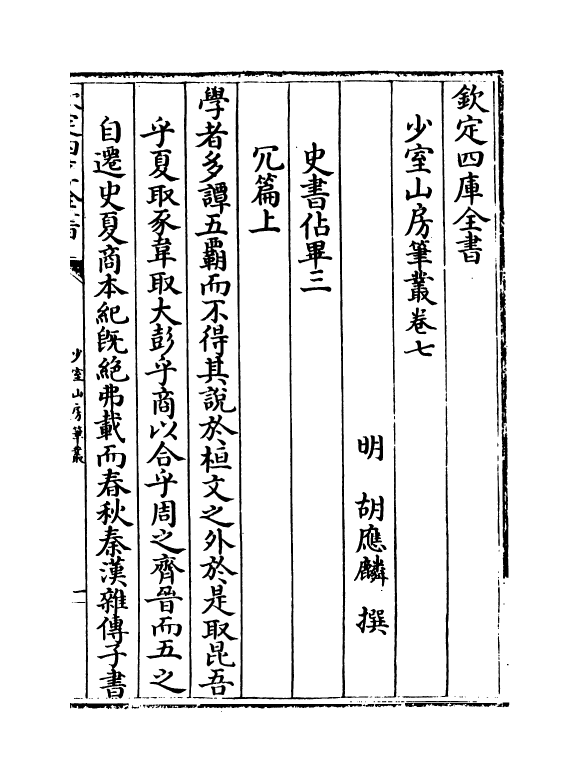 欽定四庫全書
少室山房筆叢卷七
明 胡應麟 撰
史書佔畢三
冗篇上
學者多譚五霸而不得其說於桓文之外於是取昆吾
乎夏取豕韋取大彭乎商以合乎周之齊晉而五之
自遷史夏商本紀旣絶弗載而春秋秦漢雜傳子書
欽定四庫全書
少室山房筆叢
一